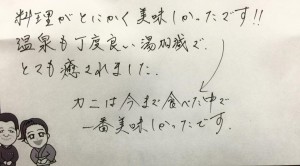 料理がとにかく美味しかったです!!
温泉も丁度良い湯加減で、
とても癒されました.
カニは今まで食べた中で
一番美味しかったです.